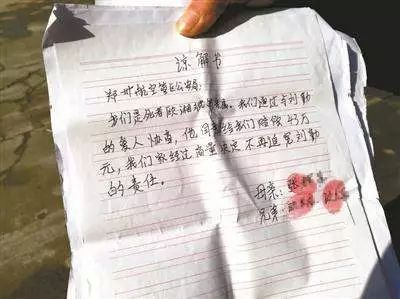 谅解书
郑州航空港区公安局：
我们是死者欧湘斌家属。我们通过与刘勤
的家人协商，他同意给我们赔偿43万
元，我们家经过商量决定不再追究刘勤
的责任。
母亲：张
兄弟：